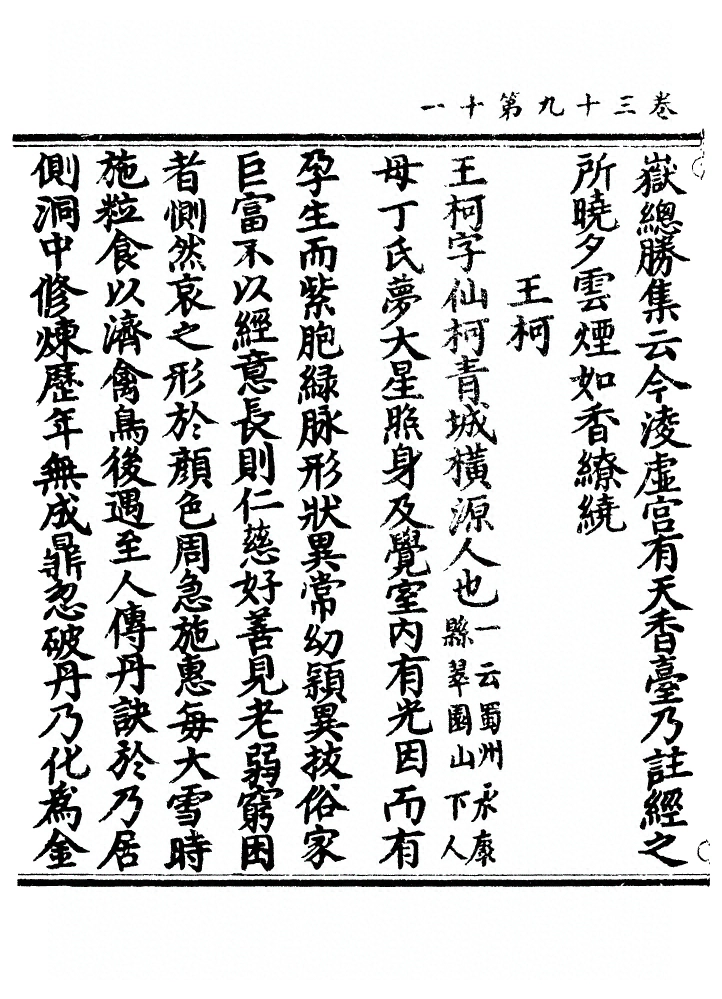 卷三十九第十一
嶽總勝集云今淩虛宮有天香臺乃註經之
所曉夕雲煙如香繚繞
王柯
王柯字仙柯青城橫源人也一云蜀州永康縣翠圍山下人
母丁氏夢大星照身及覺室内有光因而有
孕生而紫胞綠脉形狀異常幼穎異拔俗家
巨富不以經意長則仁慈好善見老弱窮困
者惻然哀之形於顔色周急施惠每大雪時
施粒食以濟禽鳥後遇至人傳丹訣於乃居
側洞中修煉歷年無成鼎忽破丹乃化為金